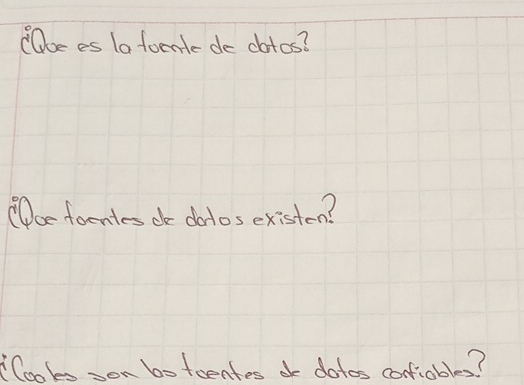 ¿Que es la fuente de datos?
¿Que fuentes de datos existen?
¿Cuales son las fuentes de datos confiables?